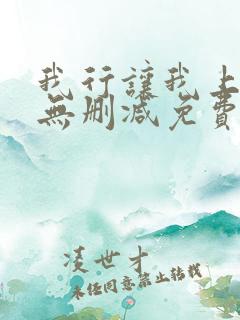 我行讓我上
無刪減免費
凌世才
未经同意禁止转载